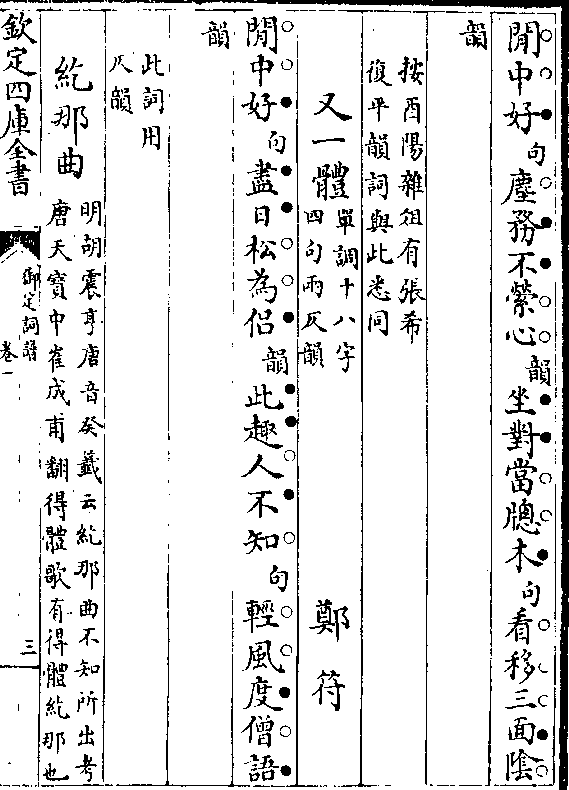 閒中好句塵務不縈心韻坐對當牕木句看移三面陰
韻
按酉陽雜俎有張希
復平韻詞與此悉同
又一體單調十八字
四句兩仄韻
鄭符
閒中好句盡日松為侣韻此趣人不知句輕風度僧語
韻
此詞用
仄韻
紇那曲明胡震亨唐音癸籖云紇那曲不知所出考
唐天寶中崔成甫翻得體歌有得體紇那也
欽定四庫全書
御定詞譜
卷一
三